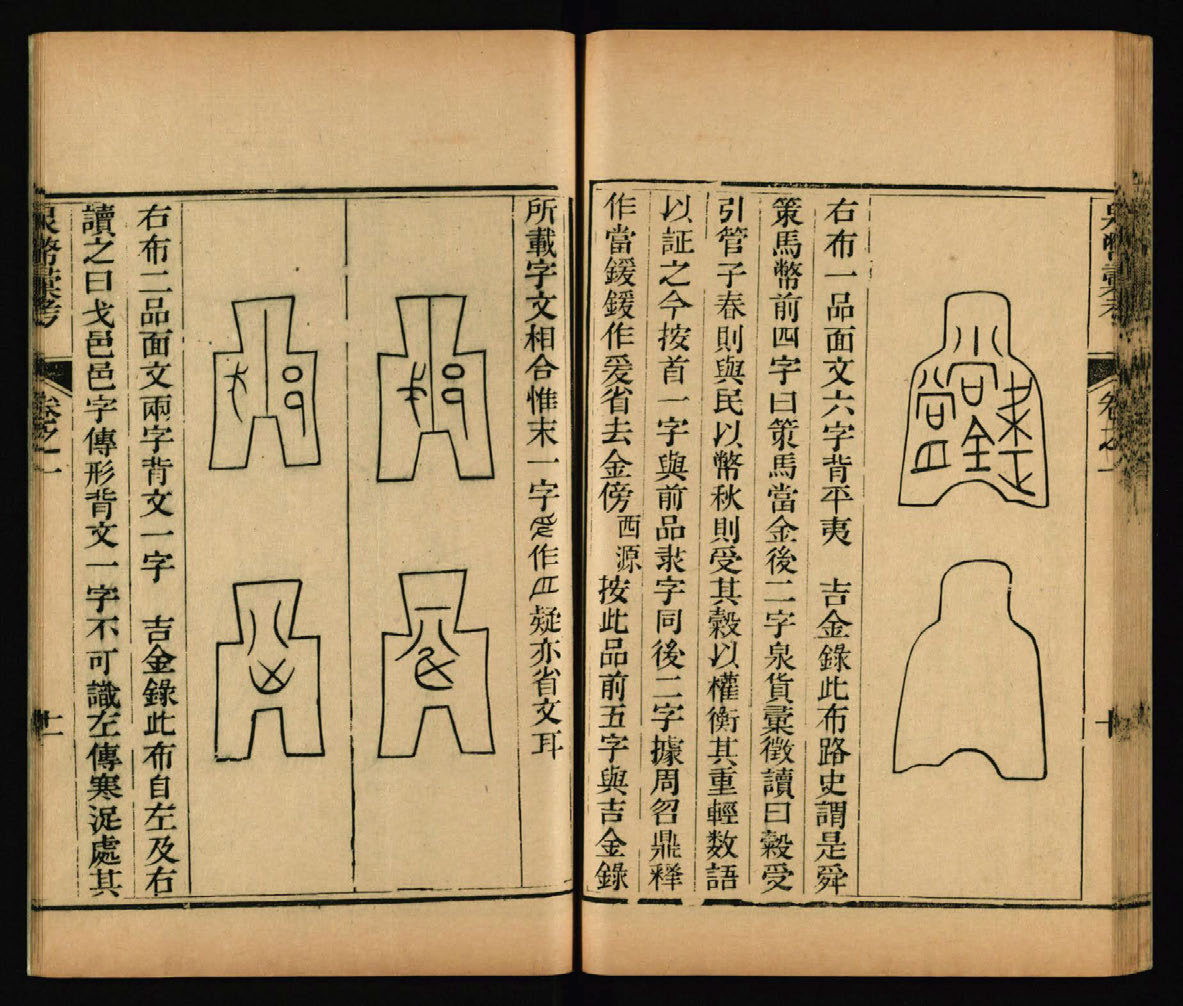 泉幣彙考
卷之一
十
右布一品面文六字背平夷 吉金錄此布路史謂是舜
策馬幣前四字曰策馬當金後二字泉貨彙徴讀曰穀受
引管子春則與民以幣秋則受其穀以權衡其重輕数語
以証之今按首一字與前品隶字同後二字據周曶鼎釋
作當鍰鍰作爰省去金傍 西源 按此品前五字與吉金錄
所載字文相合惟末一字作疑亦省文耳
右布二品面文兩字背文一字 吉金錄此布自左及右
讀之曰戈邑邑字傳形背文一字不可識左傳寒浞處其
泉幣彙考
卷之一
十一